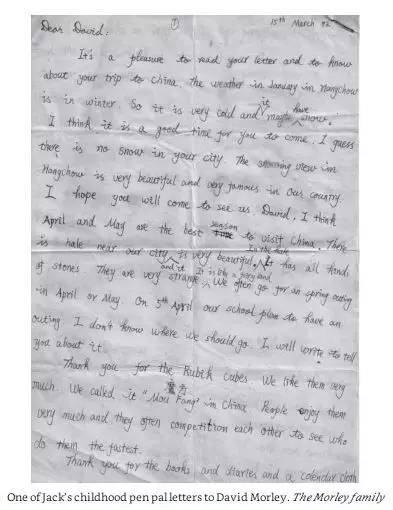 ① 15th March 82
Dear David:
It's a pleasure to read your letter and to know
about your trip to China. The weather in January in Hangchow
is in winter. So it is very cold and it maybe have snows.
I think it is a good time for you to come. I guess
there is no snow in your city. The snowing view in
Hangchow is very beautiful and very famous in our country.
I hope you will come to see us. David, I think
April and May are the best season to visit China. There
is hale near our city and it is very beautiful. In the hale It has all kinds
of stones. They are very strange. It is like a We often go for an spring outing
in April or May. On 5th April our school plan to have an
outing. I don't know where we should go. I will write to tell
you about it.
Thank you for the Rubik Cubes. We like them very
much. We called it "魔方 Mou Fang" in China. People enjoy them
very much and they often competition each other to see who
do them the fastest.
Thank you for the books and stories and a calendar cloth
One of Jack's childhood pen pal letters to David Morley. The Morley family